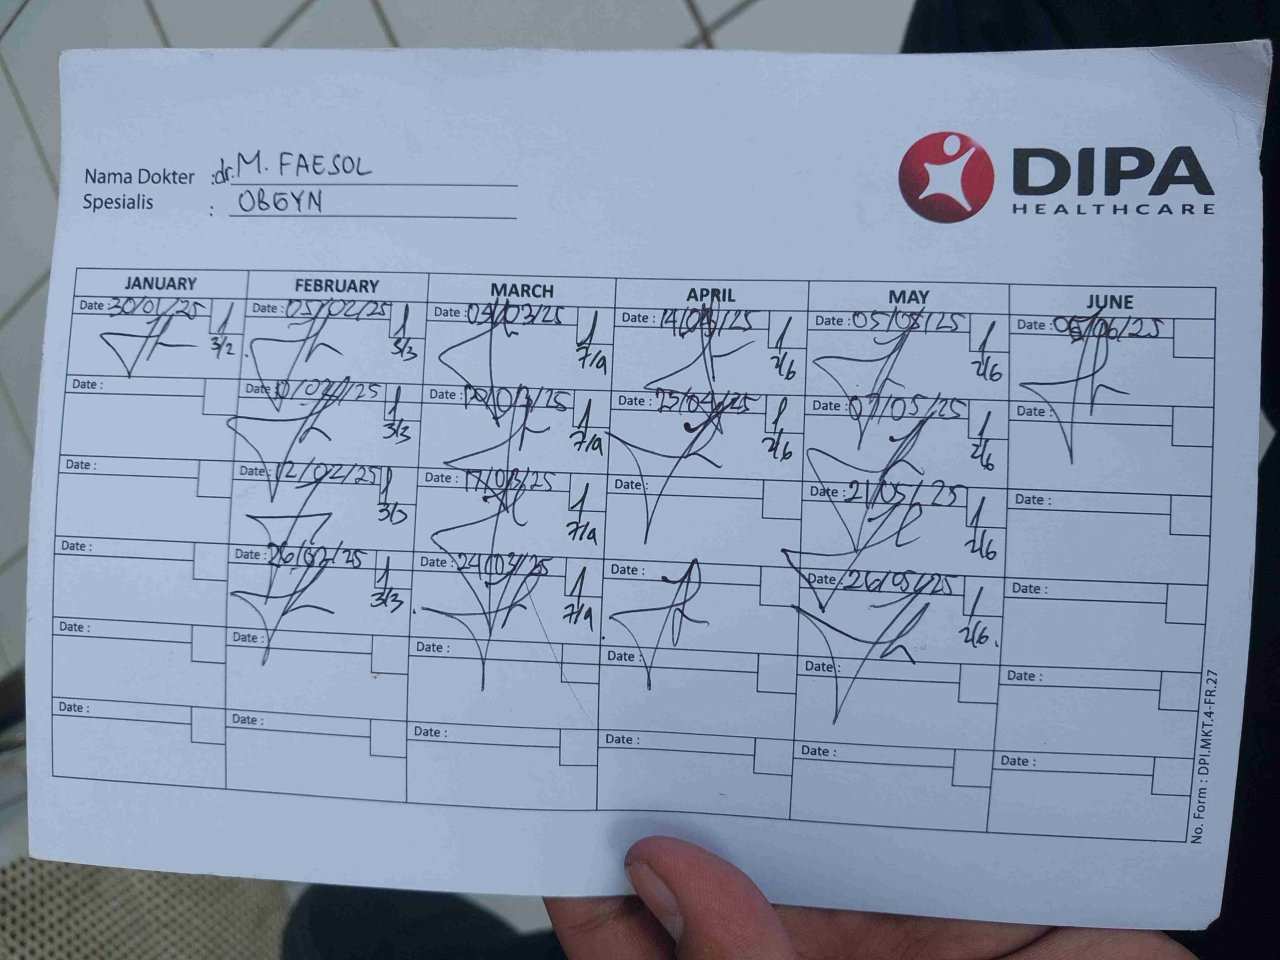 Nama Dokter : dr. M. FAESOL
Spesialis : OBGYN
DIPA
HEALTHCARE
JANUARY FEBRUARY MARCH APRIL MAY JUNE
Date : 30/01/25 3/2 Date : 05/02/25 3/3 Date : 7/9 Date : 14/04/25 2/6 Date : 05/05/25 2/6 Date : /06/25
Date : Date : 3/3 Date : 7/9 Date : 25/04/25 2/6 Date : 07/05/25 2/6 Date :
Date : Date : 12/02/25 3/3 Date : 17/03/25 7/9 Date : Date : 21/05/25 2/6 Date :
Date : Date : 26/02/25 3/3 Date : 24/03/25 7/9 Date : Date : 26/05/25 2/6 Date :
Date : Date : Date : Date : Date : Date :
Date : Date : Date : Date : Date : Date :
No. Form : DPI.MKT.4-FR.27